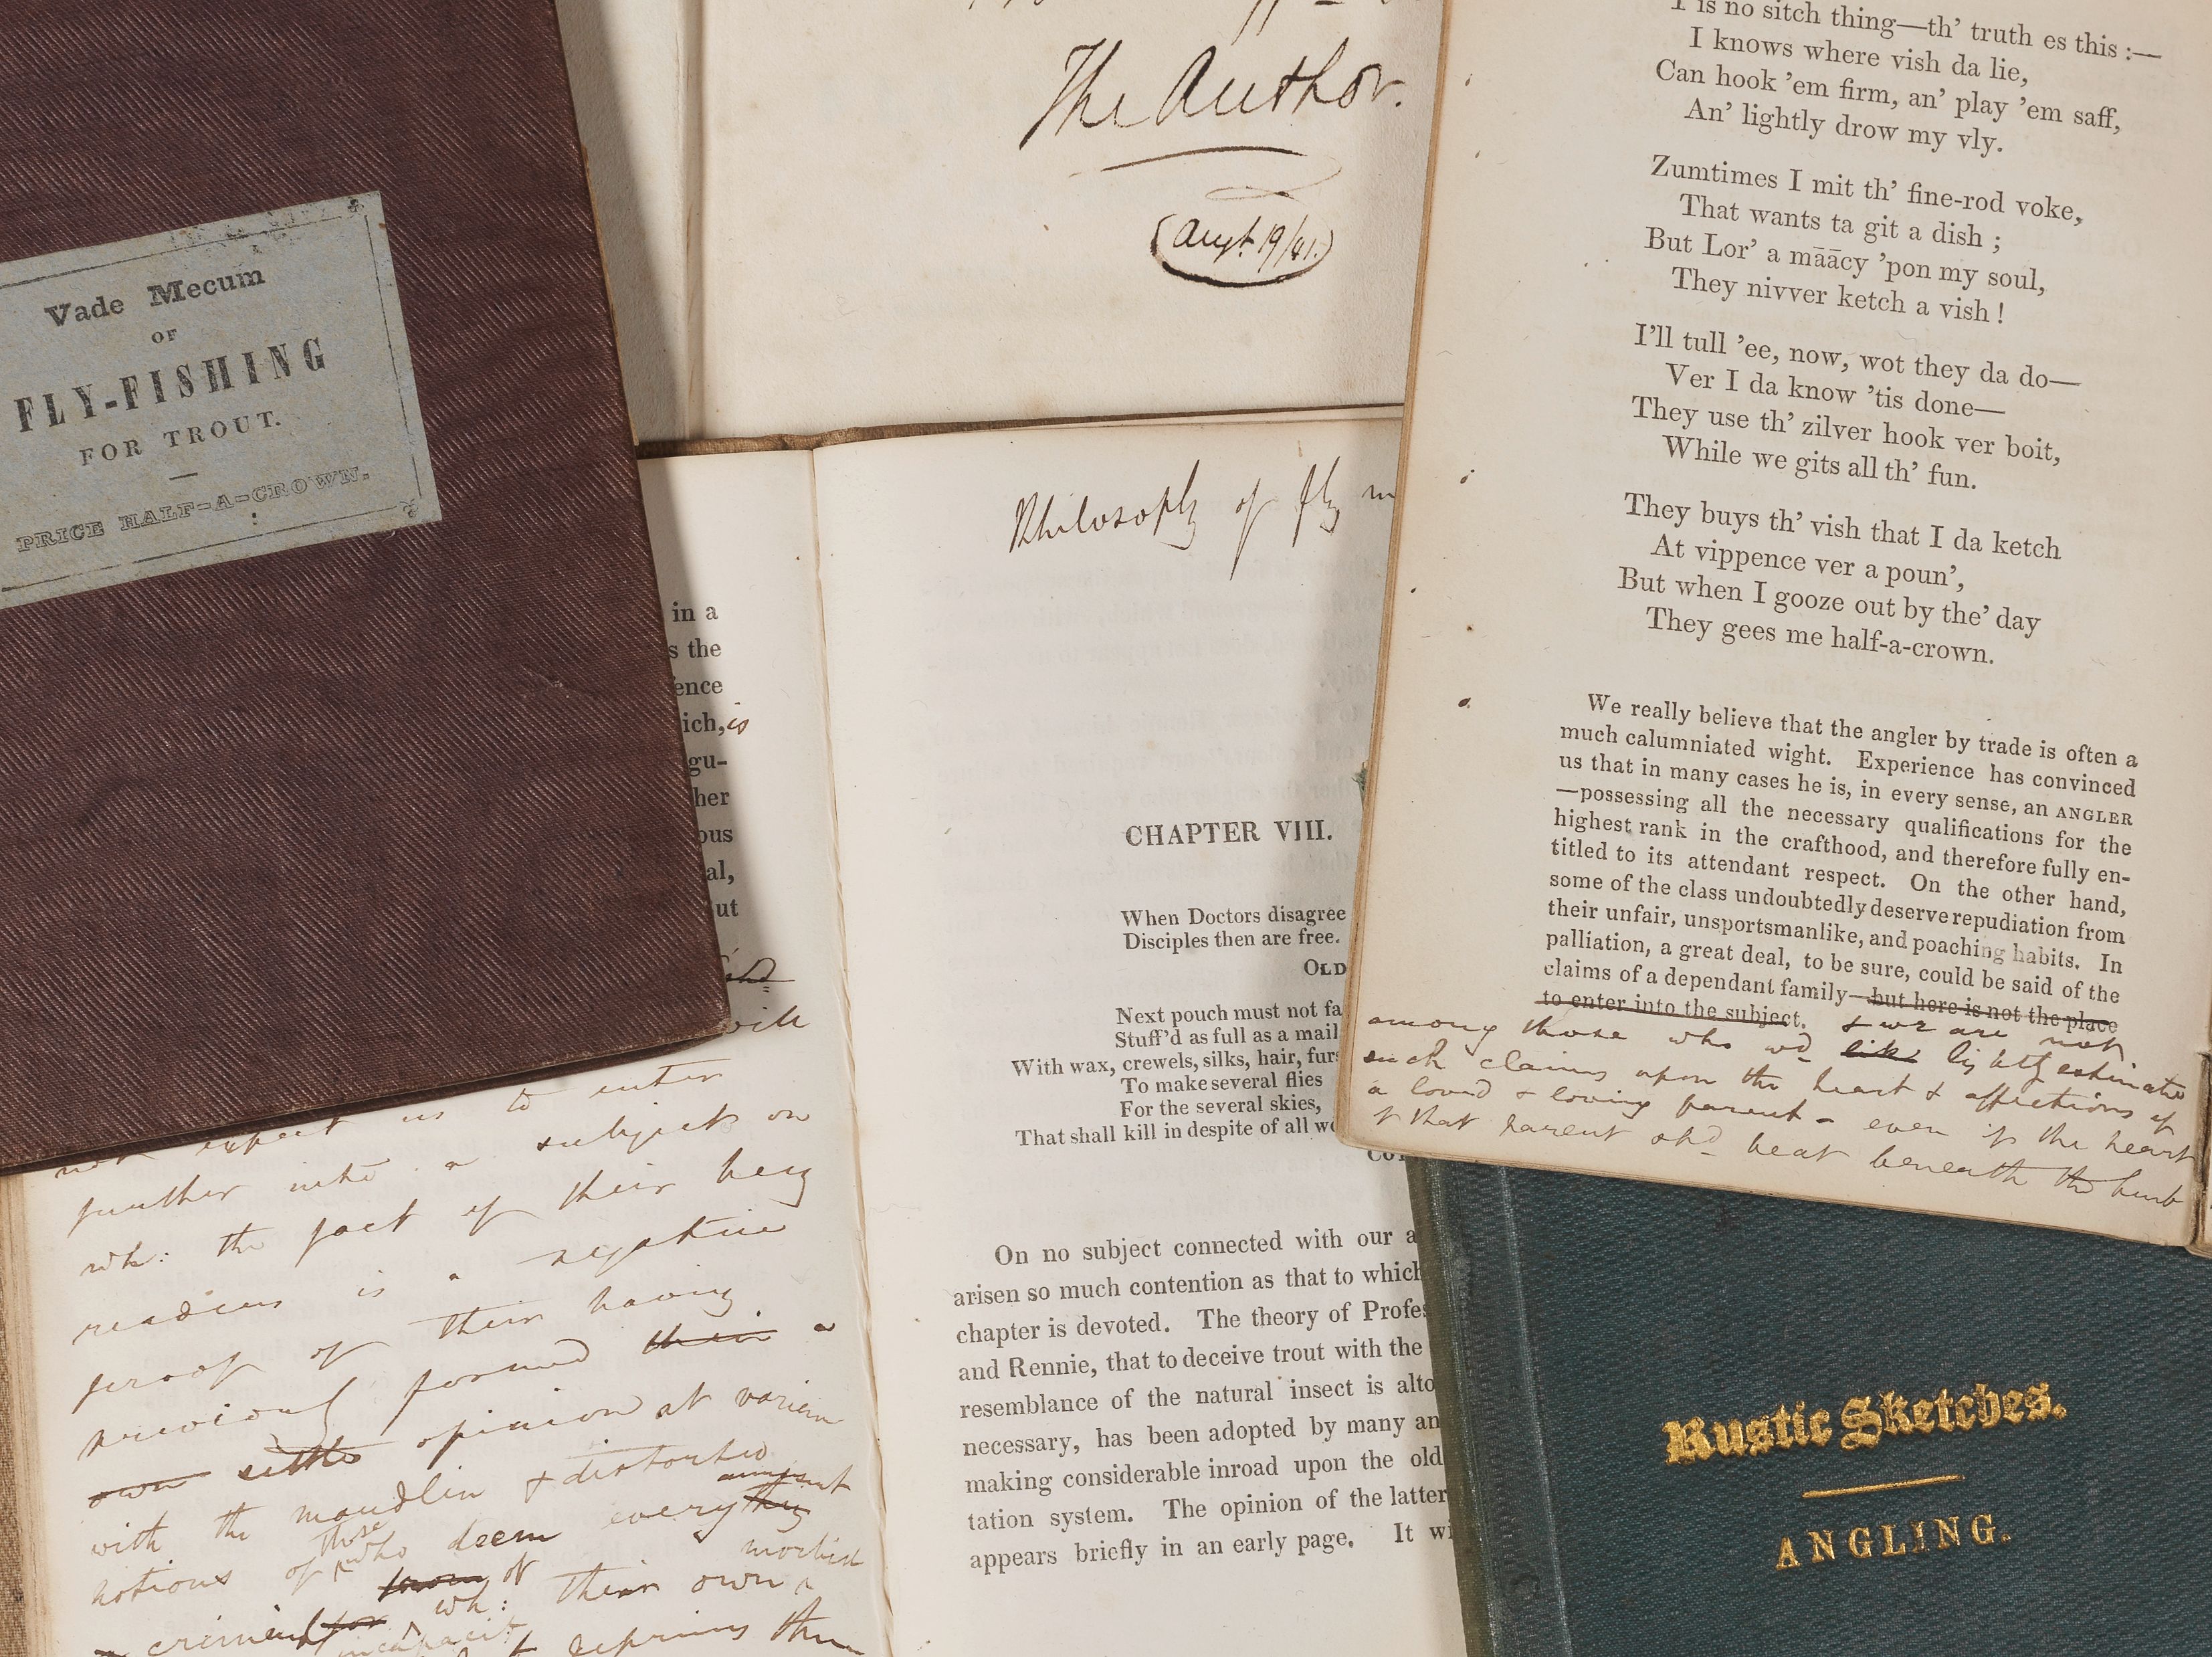 Vade Mecum
OF
FLY-FISHING
FOR TROUT.
PRICE HALF-A-CROWN.
The Author.
(Augt. 19/41.)
in a
the
ich, is
gu-
al,
Philosophy of fly
CHAPTER VIII.
When Doctors disagree
Disciples then are free.
OLD
Next pouch must not fa
Stuff'd as full as a mail
With wax, crewels, silks, hair, furs
To make several flies
For the several skies,
That shall kill in despite of all we
On no subject connected with our a
arisen so much contention as that to which
chapter is devoted. The theory of Profes
and Rennie, that to deceive trout with the
resemblance of the natural insect is alto
necessary, has been adopted by many an
making considerable inroad upon the old
tation system. The opinion of the latter
appears briefly in an early page. It wi
not expect us to enter
further into a subject on
wh: the fact of their being
readers is a negative
proof of their having
previously formed their a
own settled opinion at varian
with the maudlin & distorted
notions of those who deem every amusement
their own morbid
is no sitch thing—th' truth es this :—
I knows where vish da lie,
Can hook 'em firm, an' play 'em saff,
An' lightly drow my vly.
Zumtimes I mit th' fine-rod voke,
That wants ta git a dish ;
But Lor' a māācy 'pon my soul,
They nivver ketch a vish !
I'll tull 'ee, now, wot they da do—
Ver I da know 'tis done—
They use th' zilver hook ver boit,
While we gits all th' fun.
They buys th' vish that I da ketch
At vippence ver a poun',
But when I gooze out by the' day
They gees me half-a-crown.
We really believe that the angler by trade is often a
much calumniated wight. Experience has convinced
us that in many cases he is, in every sense, an ANGLER
—possessing all the necessary qualifications for the
highest rank in the crafthood, and therefore fully en-
titled to its attendant respect. On the other hand,
some of the class undoubtedly deserve repudiation from
their unfair, unsportsmanlike, and poaching habits. In
palliation, a great deal, to be sure, could be said of the
claims of a dependant family—but here is not the place
to enter into the subject. & we are not
among those who wd lightly estimate
such claims upon the heart & affections of
a loved & loving parent - even if the heart
of that parent shd beat beneath the
Rustic Sketches.
ANGLING.